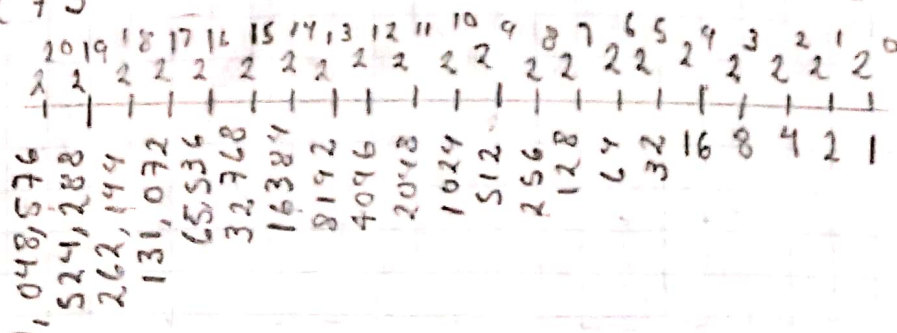 2^20 2^19 2^18 2^17 2^16 2^15 2^14 2^13 2^12 2^11 2^10 2^9 2^8 2^7 2^6 2^5 2^4 2^3 2^2 2^1 2^0
,048,576 524,288 262,144 131,072 65,536 32768 16384 8192 4096 2048 1024 512 256 128 64 32 16 8 4 2 1